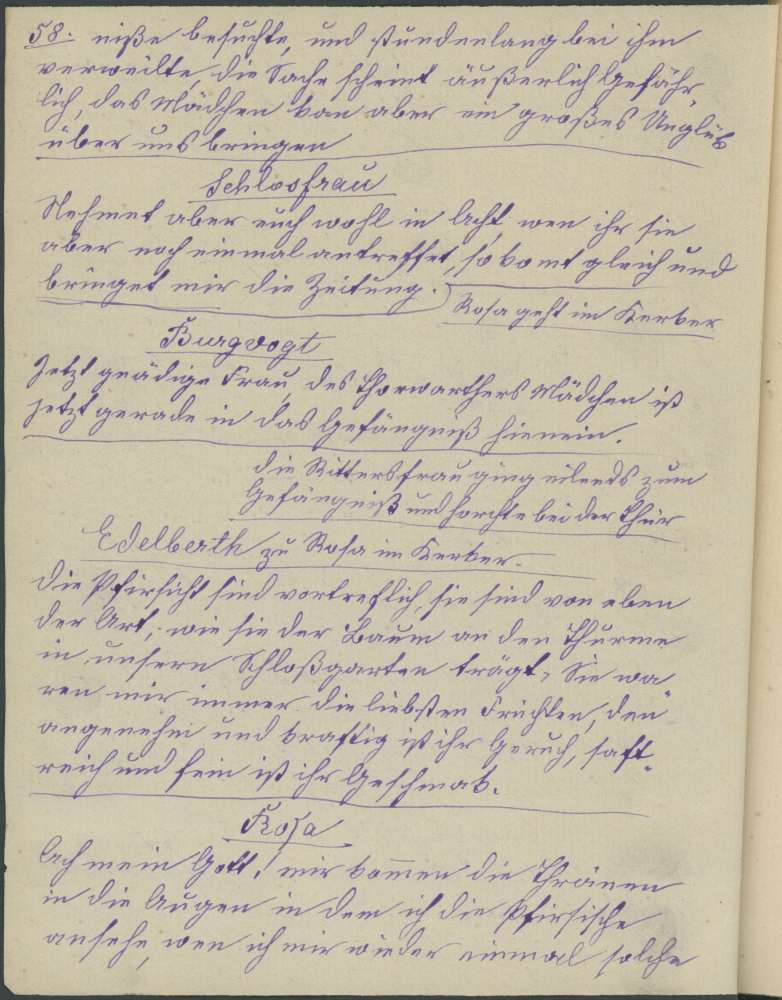 58. niße besuchte, und stundenlang bei ihm
verweilte, die Sache scheint äußerlich Gefähr
lich, das Mädchen kan aber ein großes Unglük
über uns bringen
Schlosfrau
Nehmet aber euch wohl in Acht wen ihr sie
aber noch einmal antreffet, so komt gleich und
bringet mir die Zeitung.
Rosa geht im Kerker
Burgvogt
Jetzt gnädige Frau, des Thorwarthers Mädchen ist
jetzt gerade in das Gefängniß hienein.
die Rittersfrau ging eilends zum
Gefängniß und horchte bei der Thür
Edelberth zu Rosa im Kerker.
Die Pfirsicht sind vortreflich, sie sind von eben
der Art, wie sie der Baum an den Thurme
in unsern Schloßgarten trägt, Sie wa
ren mir immer die liebsten Früchten, den
angenehm und kraftig ist ihr Geruch, saft-
reich und fein ist ihr Geschmak.
Rosa
Ach mein Gott! mir kom̅en die Thränen
in die Augen in dem ich die Pfirsische
ansehe, wen ich mir wieder einmal solche